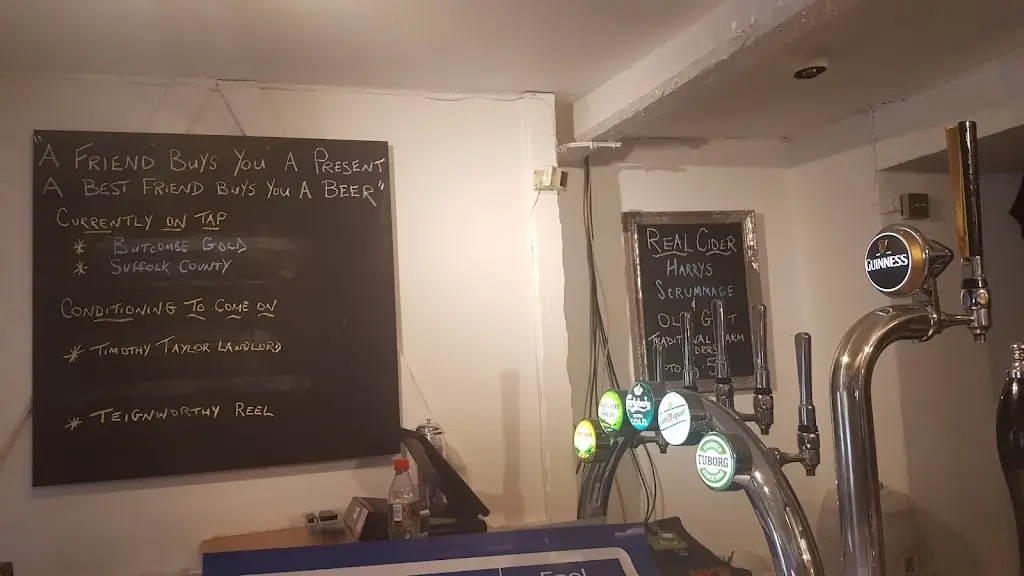 "A FRIEND BUYS YOU A PRESENT
A BEST FRIEND BUYS YOU A BEER"
CURRENTLY ON TAP
* BUTCOMBE GOLD
* SUFFOLK COUNTY
CONDITIONING TO COME ON
* TIMOTHY TAYLOR LANDLORD
* TEIGNWORTHY REEL
REAL CIDER
HARRYS
SCRUMMAGE
GUINNESS
San Miguel
TUBORG